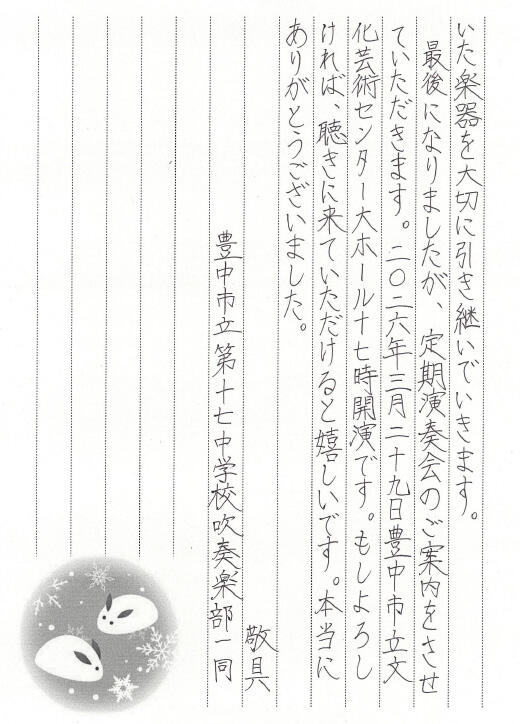 いた楽器を大切に引き継いでいきます。
最後になりましたが、定期演奏会のご案内をさせ
ていただきます。二〇二六年三月二十九日豊中市立文
化芸術センター大ホール十七時開演です。もしよろし
ければ、聴きに来ていただけると嬉しいです。本当に
ありがとうございました。
敬具
豊中市立第十七中学校吹奏楽部一同